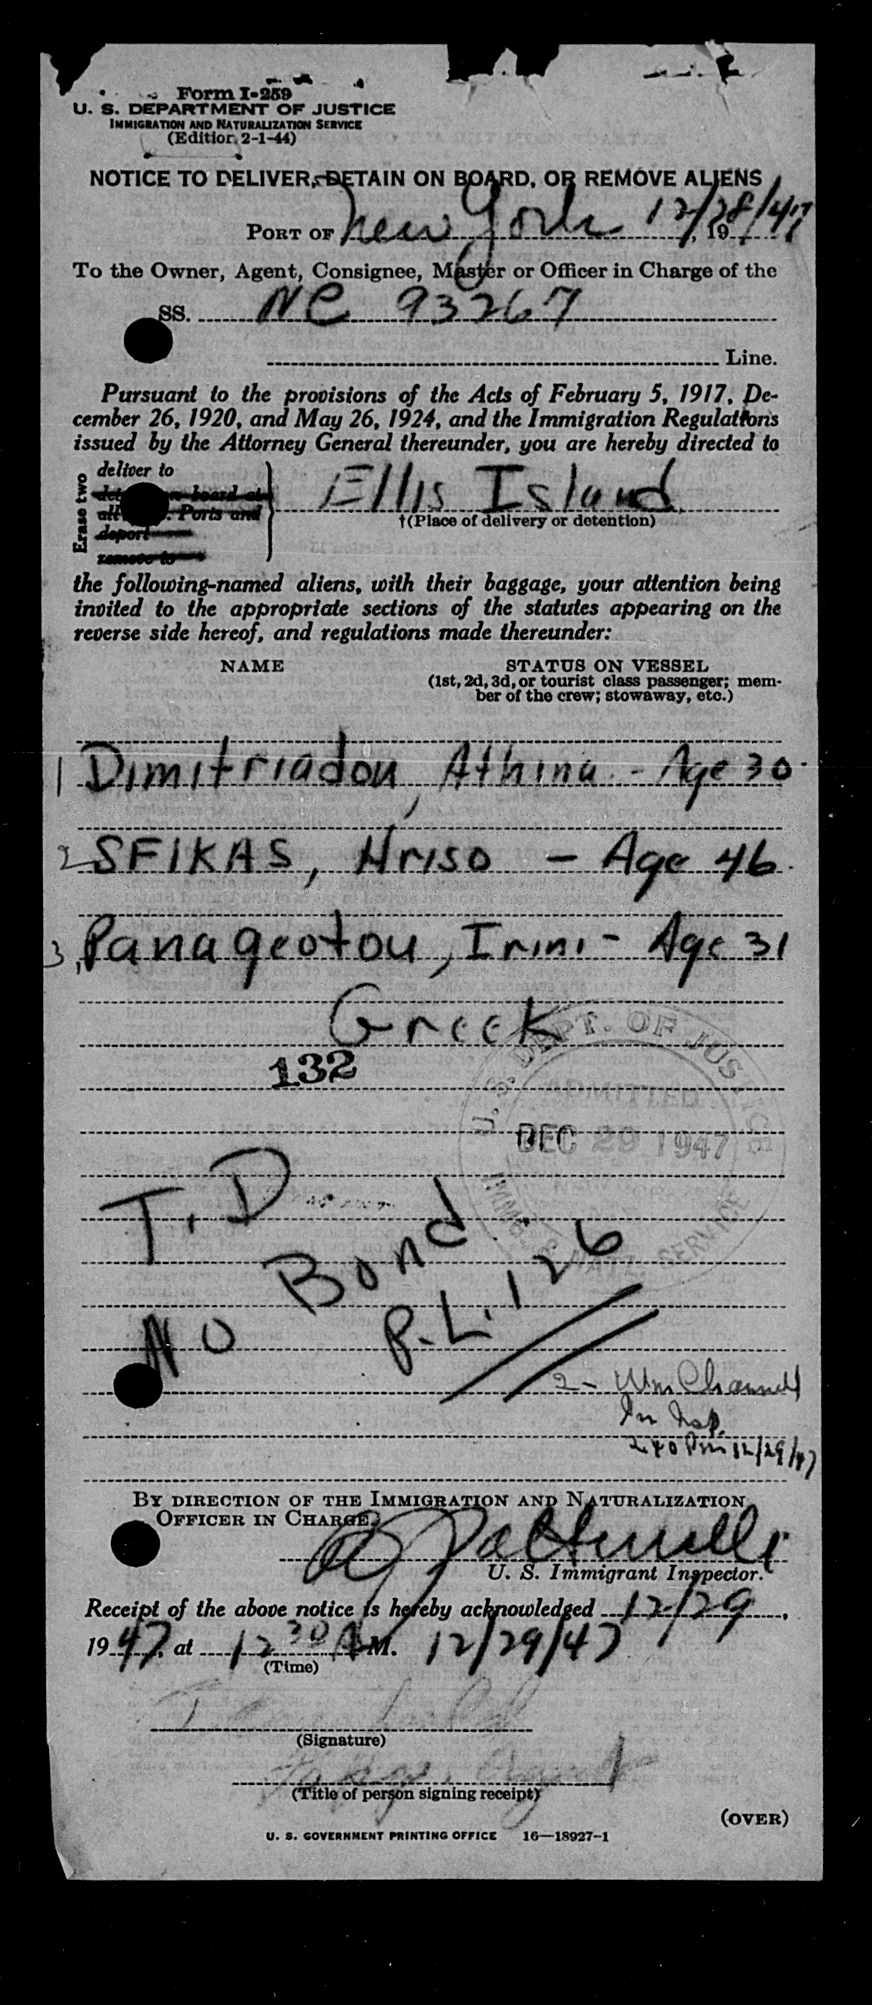 Form I-259
U. S. DEPARTMENT OF JUSTICE
IMMIGRATION AND NATURALIZATION SERVICE
(Edition 2-1-44)
NOTICE TO DELIVER, DETAIN ON BOARD, OR REMOVE ALIENS
PORT OF New York, 12/28/47, 19
To the Owner, Agent, Consignee, Master or Officer in Charge of the
SS. NC 93267
Line.
Pursuant to the provisions of the Acts of February 5, 1917, De-
cember 26, 1920, and May 26, 1924, and the Immigration Regulations
issued by the Attorney General thereunder, you are hereby directed to
Erase two
deliver to
on board at
all Ports and
deport
remove to
Ellis Island
†(Place of delivery or detention)
the following-named aliens, with their baggage, your attention being
invited to the appropriate sections of the statutes appearing on the
reverse side hereof, and regulations made thereunder:
NAME STATUS ON VESSEL
(1st, 2d, 3d, or tourist class passenger; mem-
ber of the crew; stowaway, etc.)
1 Dimitriadou, Athina - Age 30
2 SFIKAS, Hriso - Age 46
3, Panageotou, Irini - Age 31
Greek
132
U. S. DEPT. OF JUSTICE
ADMITTED
DEC 29 1947
IMMIG. & NATZ. SERVICE
T. D
No Bond
P.L. 126
2- Wm Channell
Im Insp.
240 Pm 12/29/47
BY DIRECTION OF THE IMMIGRATION AND NATURALIZATION
OFFICER IN CHARGE.
U. S. Immigrant Inspector.
Receipt of the above notice is hereby acknowledged 12/29,
1947, at 12 30 A M. 12/29/47
(Time)
(Signature)
Agent
(Title of person signing receipt)
(OVER)
U. S. GOVERNMENT PRINTING OFFICE 16—18927-1